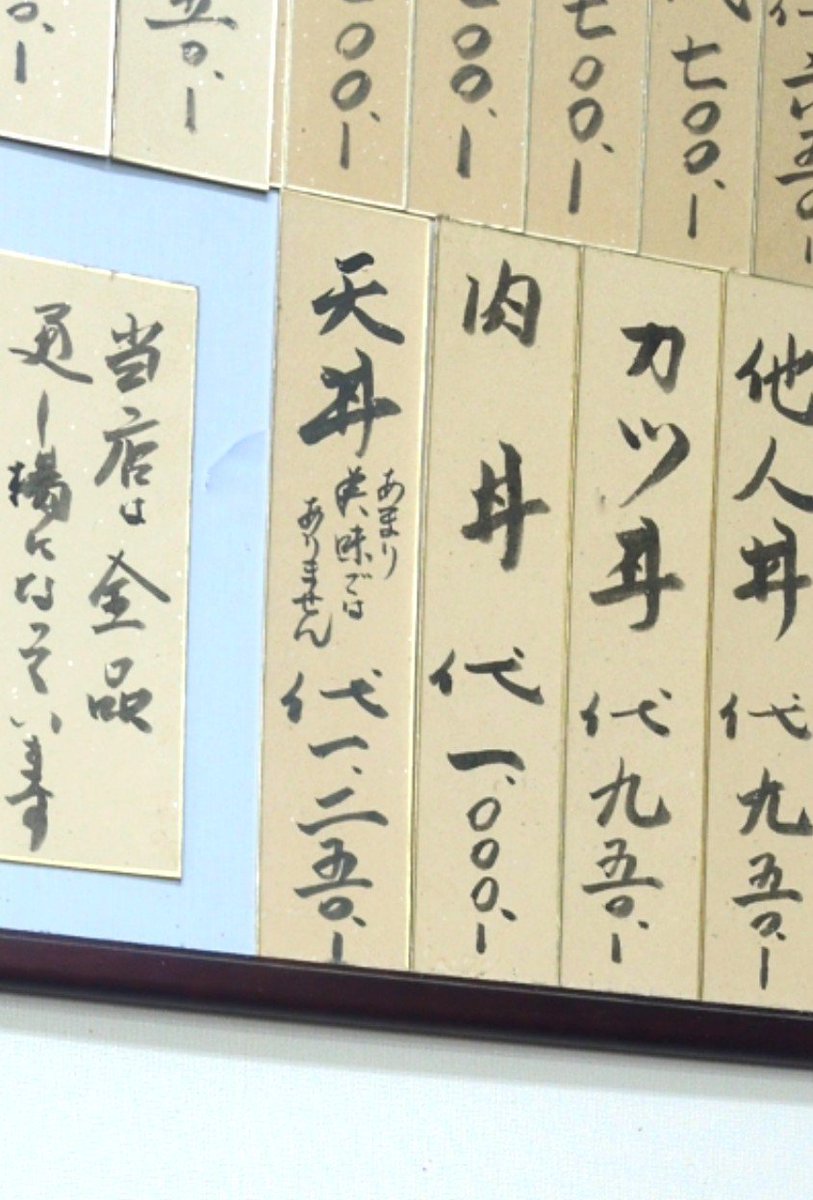 六五〇
七〇〇、-
七〇〇、-
〇〇、-
〇〇、-
五〇、-
〇、-
他人丼 代九五〇、-
カツ丼 代九五〇、-
肉丼 代一、〇〇〇、-
天丼
あまり
美味では
ありません
代一、二五〇、-
当店は全品
通し揚になっています